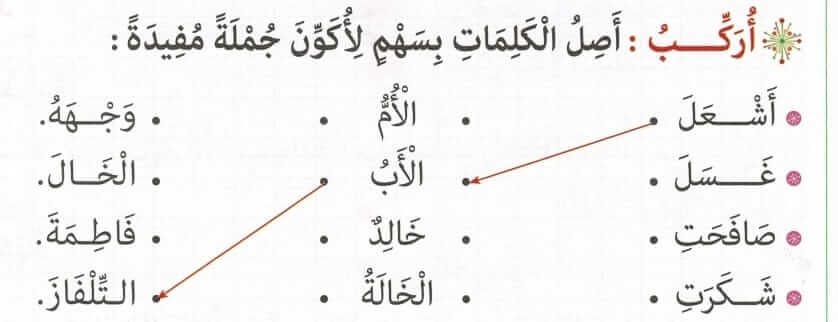 أُرَكِّـــبُ : أَصِلُ الْكَلِمَاتِ بِسَهْمٍ لِأُكَوِّنَ جُمْلَةً مُفِيدَةً :
أَشْـــعَلَ • • الْأُمُّ • • وَجْـــهَهُ.
غَـــسَلَ • • الْأَبُ • • الْخَـــالَ.
صَافَحَتِ • • خَالِدٌ • • فَاطِـمَةَ.
شَـــكَرَتِ • • الْخَالَةُ • • الـتِّلْفَازَ.